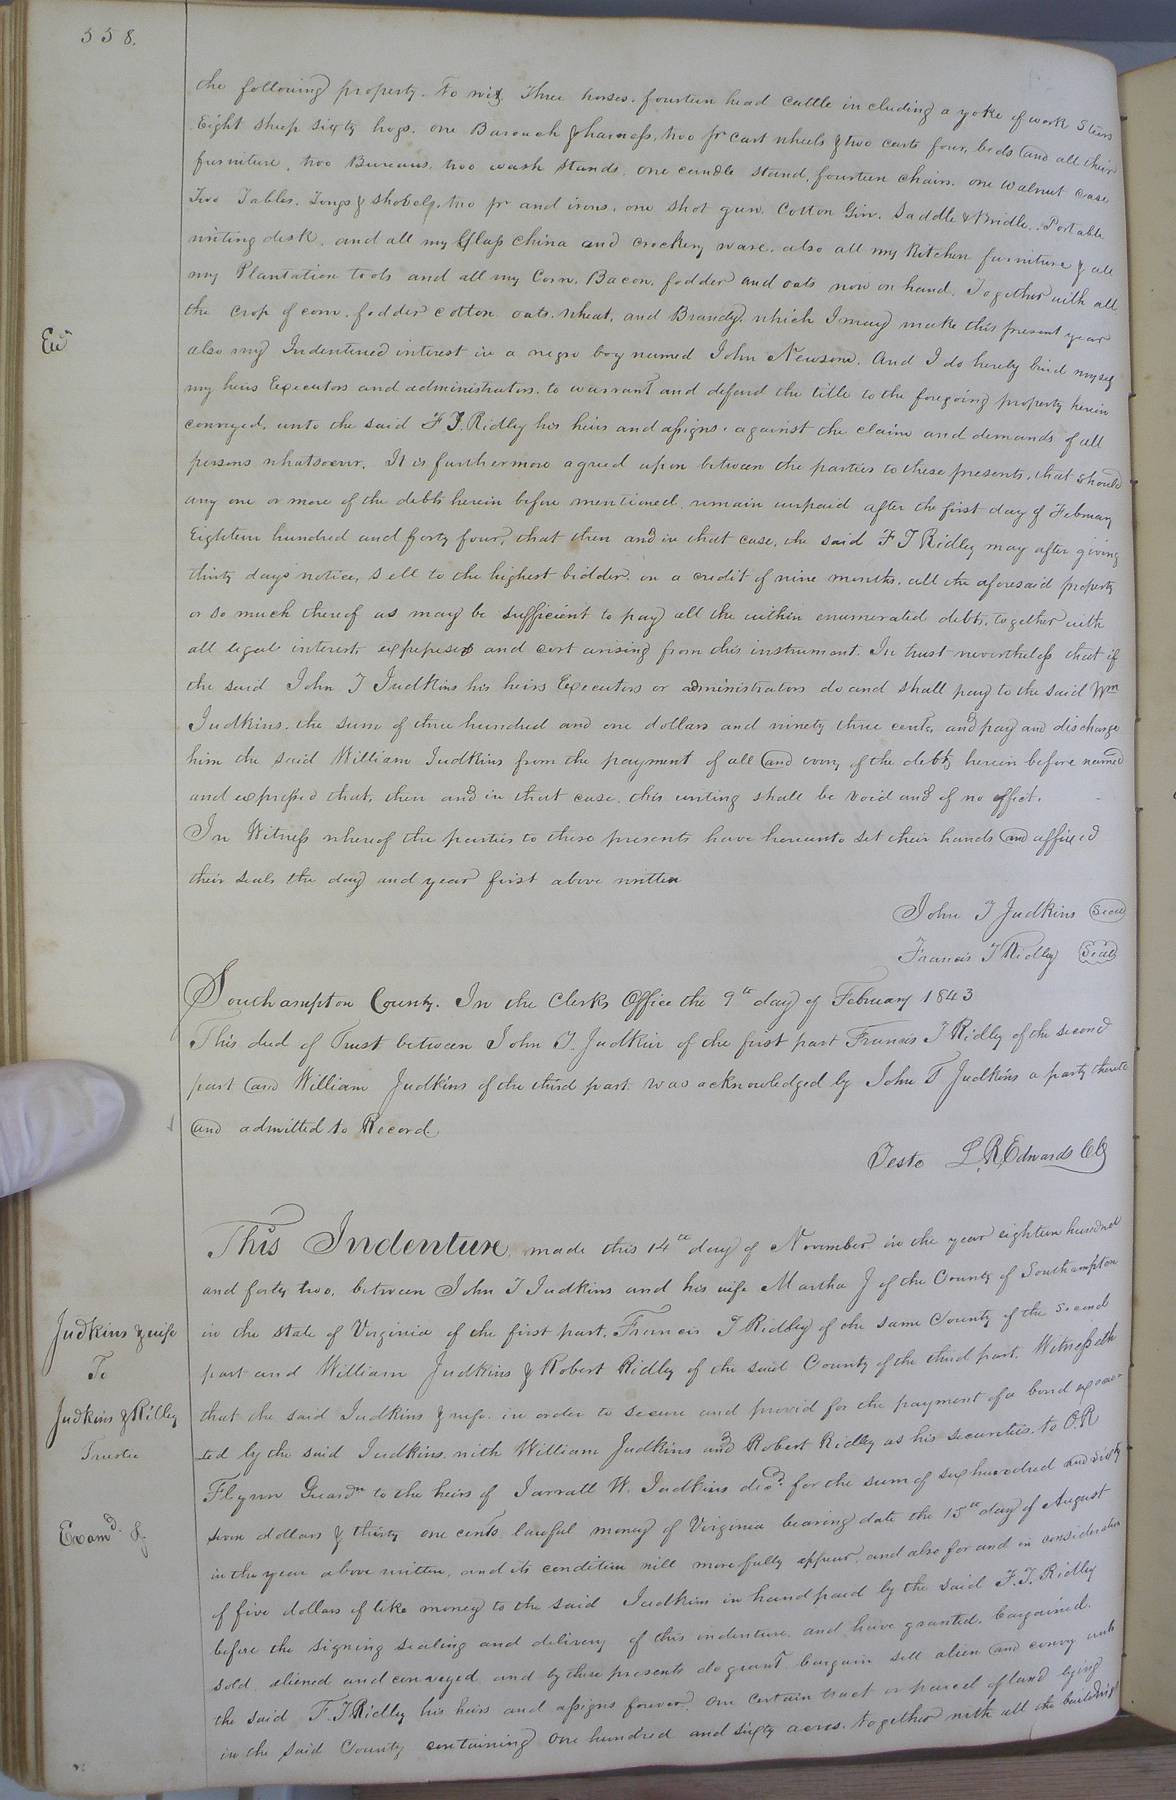 558.
the following property. To wit, Three horses. fourteen head Cattle including a yoke of work Steers
Eight sheep sixty hogs. one Barouch & harness, two pr cart wheels & two carts four, beds and all their
furniture, two Bureaus, two wash stands, one candle stand, fourteen chairs. one walnut case
Two Tables, Tongs & shovels, two pr and irons, one shot gun, Cotton Gin, Saddle & Bridle, Portable
writing desk, and all my Glass China and crockery ware. also all my Kitchen furniture & all
my Plantation tools and all my Corn, Bacon, fodder and oats now on hand, Together with all
the crop of corn, fodder cotton oats, wheat, and Brandy, which I may make this present year
also my Indentured interest in a negro boy named John Newsom. And I do hereby bind myself
my heirs Executors and administrators, to warrant and defend the title to the foregoing property herein
conveyed, unto the said F T. Ridley his heirs and assigns, against the claim and demands of all
persons whatsoever. It is furthermore agreed upon between the parties to these presents, that should
any one or more of the debts herein before mentioned remain unpaid after the first day of February
Eighteen hundred and forty four, that then and in that case, the said F T Ridley may after giving
thirty days notice, sell to the highest bidder, on a credit of nine months, all the aforesaid property
or so much thereof as may be sufficient to pay all the within enumerated debts, together with
all legal interest expenses and cost arising from this instrument. In trust nevertheless that if
the said John T Judkins his heirs Executors or administrators do and shall pay to the said Wm
Judkins, the sum of three hundred and one dollars and ninety three cents, and pay and discharge
him the said William Judkins from the payment of all and every of the debts herein before named
and expressed that, then and in that case, this writing shall be void and of no effect.
In Witness whereof the parties to these presents have hereunto set their hands and affixed
their seals the day and year first above written
John T Judkins Seal
Francis T Ridley Seal
Southampton County. In the Clerks Office the 9th day of February 1843
This deed of Trust between John T. Judkins of the first part Francis T Ridley of the second
part and William Judkins of the third part was acknowledged by John T Judkins a party thereto
and admitted to Record.
Teste L, R, Edwards CC
Judkins & wife
To
Judkins & Ridley
Trustee
Examd. &
This Indenture made this 14th day of November in the year eighteen hundred
and forty two, between John T Judkins and his wife Martha J of the County of Southampton
in the state of Virginia of the first part, Francis T Ridley of the same County of the second
part and William Judkins & Robert Ridley of the said County of the third part. Witnesseth
that the said Judkins & wife in order to secure and provid for the payment of a bond execu-
ted by the said Judkins with William Judkins and Robert Ridley as his securities to O.R
Flynn Guardn to the heirs of Jarratt W. Judkins decd. for the sum of six hundred and sixty
seven dollars & thirty one cents lawful money of Virginia bearing date the 15th day of August
in the year above written, and its condition will more fully appear, and also for and in consideration
of five dollars of like money to the said Judkins in hand paid by the said F. T. Ridley
before the signing sealing and delivery of this indenture, and have granted, bargained,
sold, aliened and conveyed and by these presents do grant bargain sell alien and convey unto
the said F. T Ridley his heirs and assigns forever, One certain tract or parcel of land lying
in the said County containing One hundred and sixty acres, together with all the buildings